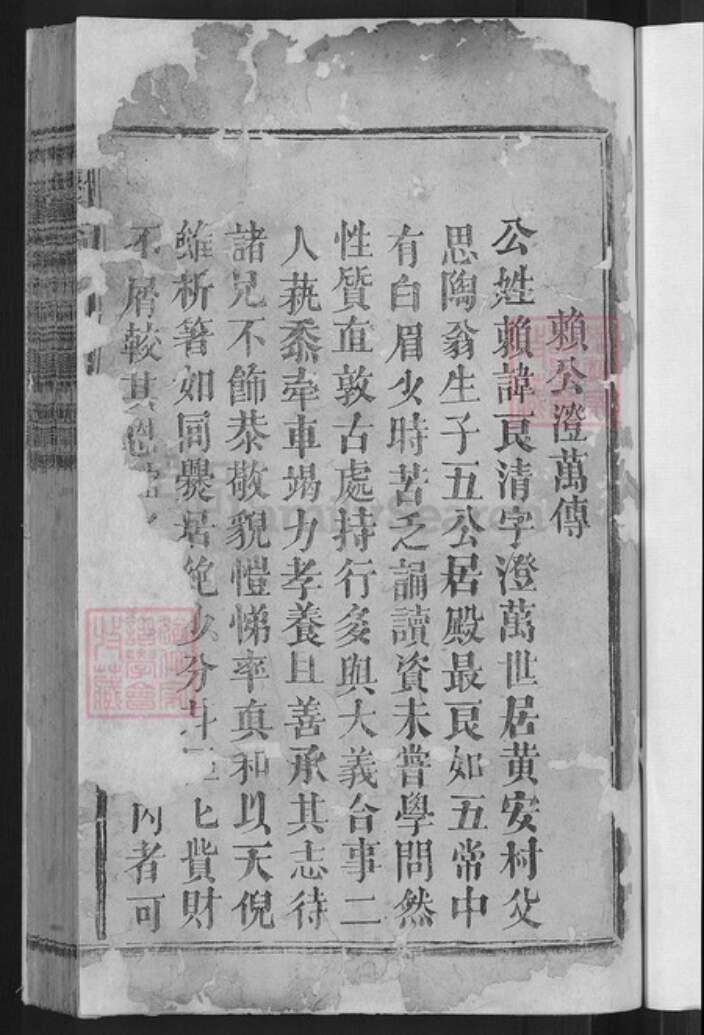 賴公澄萬傳
公姓賴諱良清字澄萬世居黃安村父
思陶翁生子五公居殿最良如五常中
有白眉少時苦乏誦讀資未嘗學問然
性質直敦古處持行多與大義合事二
人蓺黍牽車竭力孝養且善承其志待
諸兄不飾恭敬貌愷悌率真和以天倪
雖析箸如同爨居 分 貲財
不屑較其 內者可